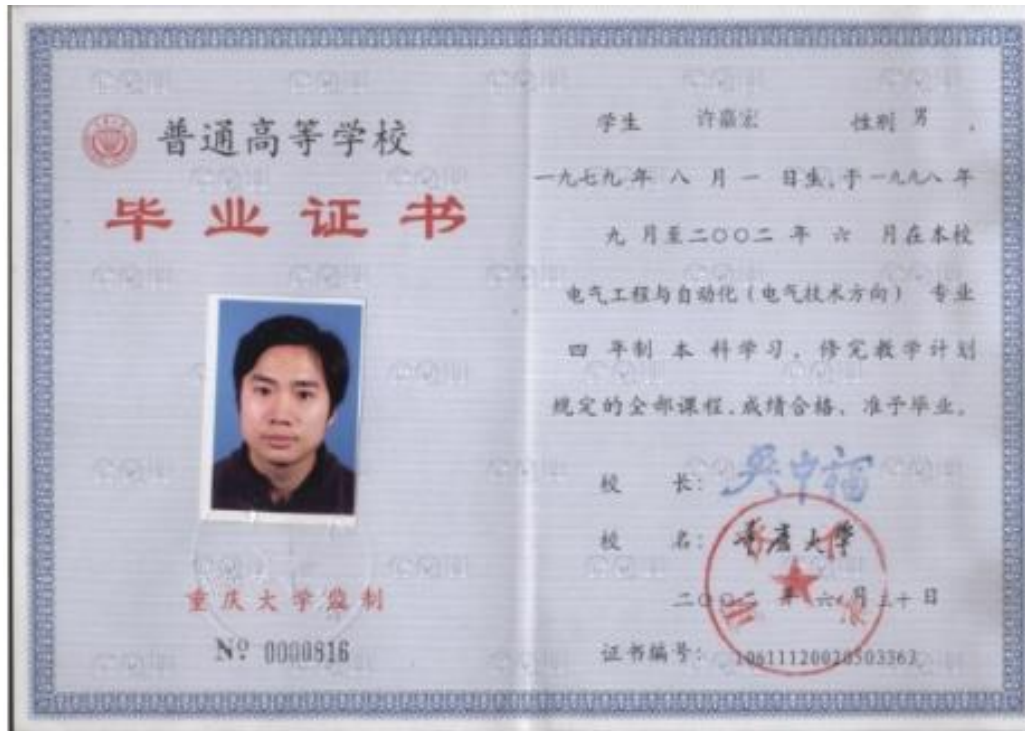 普通高等学校
毕业证书
重庆大学监制
Nº 0000816
学生 许嘉宏 性别 男 ,
一九七九年 八 月 一 日生,于一九九八年
九 月至二〇〇二 年 六 月在本校
电气工程与自动化(电气技术方向) 专业
四 年制 本 科学习,修完教学计划
规定的全部课程,成绩合格,准予毕业。
校 长: 吴中福
校 名: 重庆大学
二〇〇二 年 六 月三十 日
证书编号: 10611120020503363